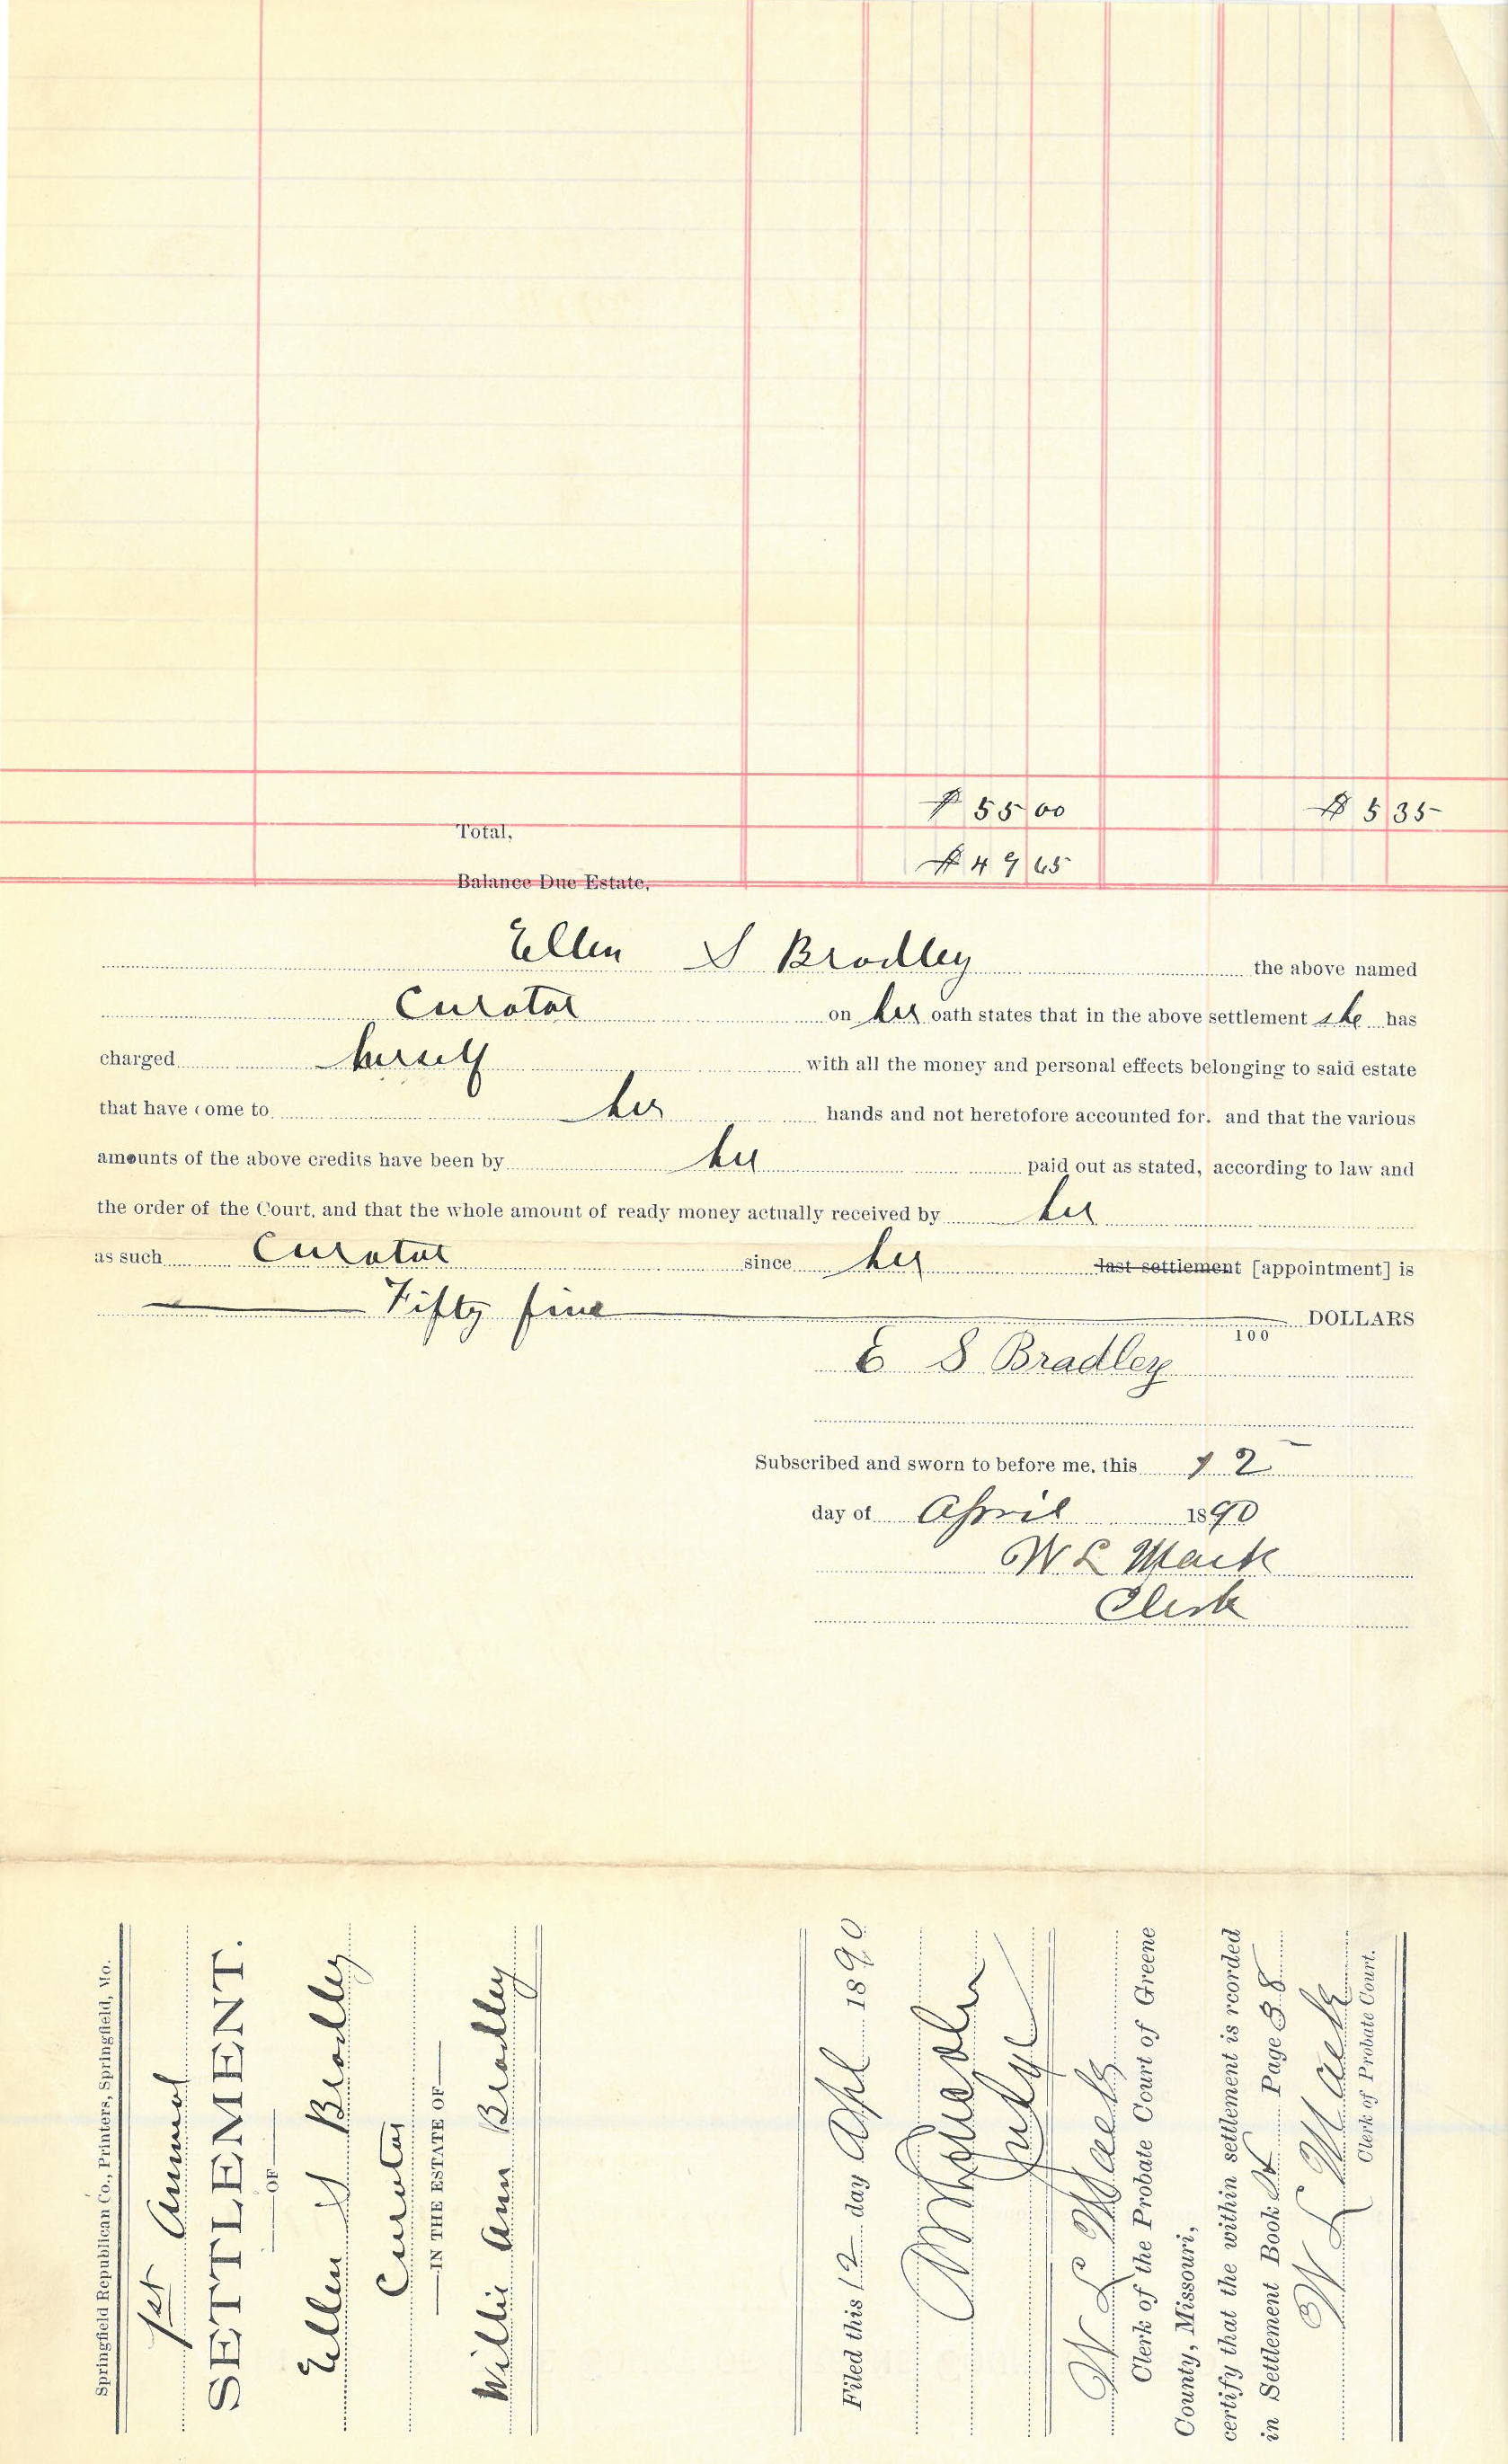 $ 55 00 $ 5 35
Total,
$ 49 65
Balance Due Estate,
Ellen S Bradley the above named
Curator on her oath states that in the above settlement she has
charged herself with all the money and personal effects belonging to said estate
that have come to her hands and not heretofore accounted for. and that the various
amounts of the above credits have been by her paid out as stated, according to law and
the order of the Court, and that the whole amount of ready money actually received by her
as such Curator since her last settlement [appointment] is
Fifty five DOLLARS
100
E S Bradley
Subscribed and sworn to before me, this 12
day of April 1890
W L Mack
Clerk
Springfield Republican Co., Printers, Springfield, Mo.
1st Annual
SETTLEMENT.
—OF—
Ellen S Bradley
Curator
—IN THE ESTATE OF—
Willie Ann Bradley
Filed this 12 day Apl 1890
Judge
W L Mack
Clerk of the Probate Court of Greene
County, Missouri,
certify that the within settlement is rcorded
in Settlement Book Page 38
W L Mack
Clerk of Probate Court.